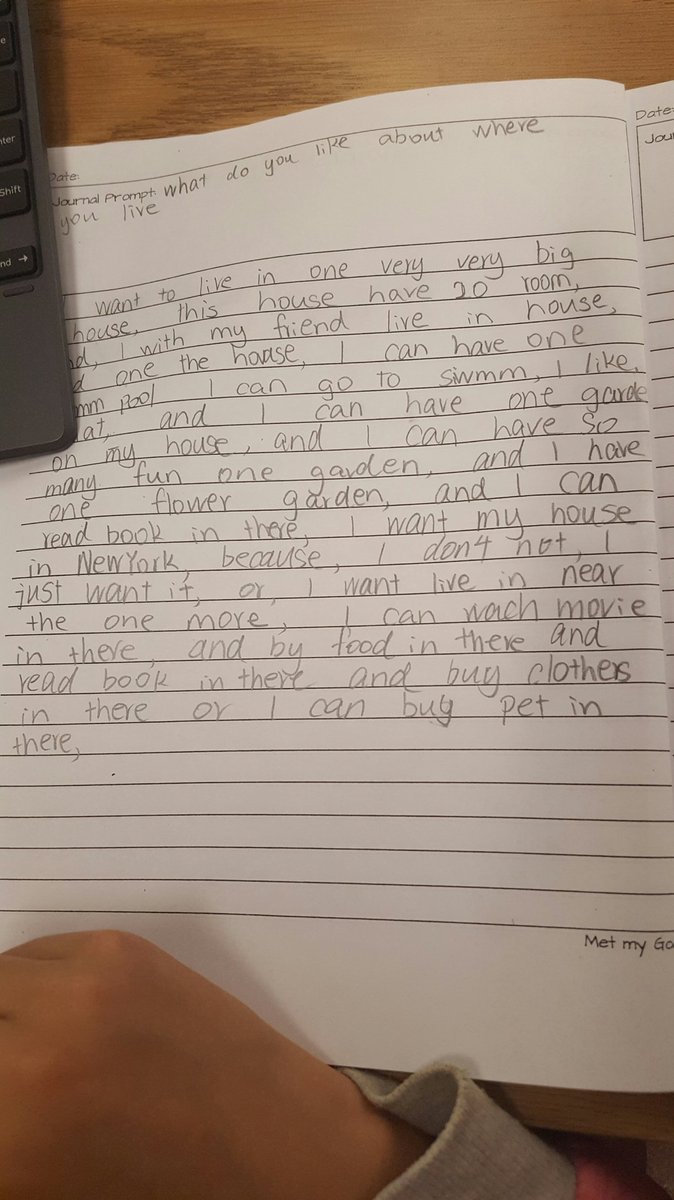 e
nter
Shift
nd →
Date:
Journal Prompt: what do you like about where
you live
want to live in one very very big
house, this house have 20 room,
nd, I with my friend live in house,
d one the house, I can have one
mm pool I can go to swmm, I like
at, and I can have one garde
on my house, and I can have so
many fun one garden, and I have
one flower garden, and I can
read book in there, I want my house
in NewYork, because, I don4 not, I
just want it, or, I want live in near
the one more, I can wach movie
in there, and by food in there and
read book in there and buy clothers
in there or I can buy pet in
there,
Met my Go
Date:
Jour